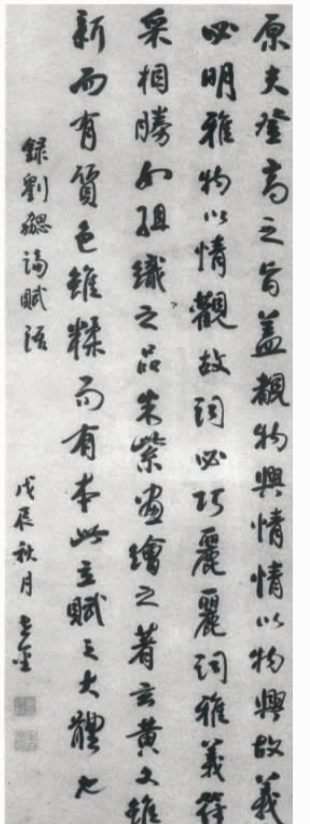 原夫登高之旨蓋覩物興情情以物興故義
必明雅物以情觀故詞必巧麗麗詞雅義符
采相勝如組織之品朱紫畫繪之著玄黃文雖
新而有質色雖糅而有本此立賦之大體也
錄劉勰論賦語
戊辰秋月